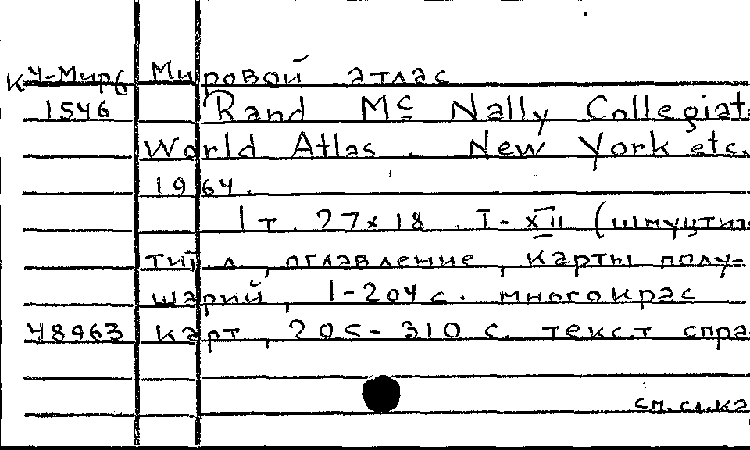 К4-Мир6 Мировой атлас
1546 Rand Mc Nally Collegiat
World Atlas. New York etc.
1964.
1 т. 27x18. I-XII (шмуцтит
тит. л., оглавление, карты полу-
шарий, 1-204 с. многокрас
48963 карт, 205-310 с. текст спра
см. сл. ка